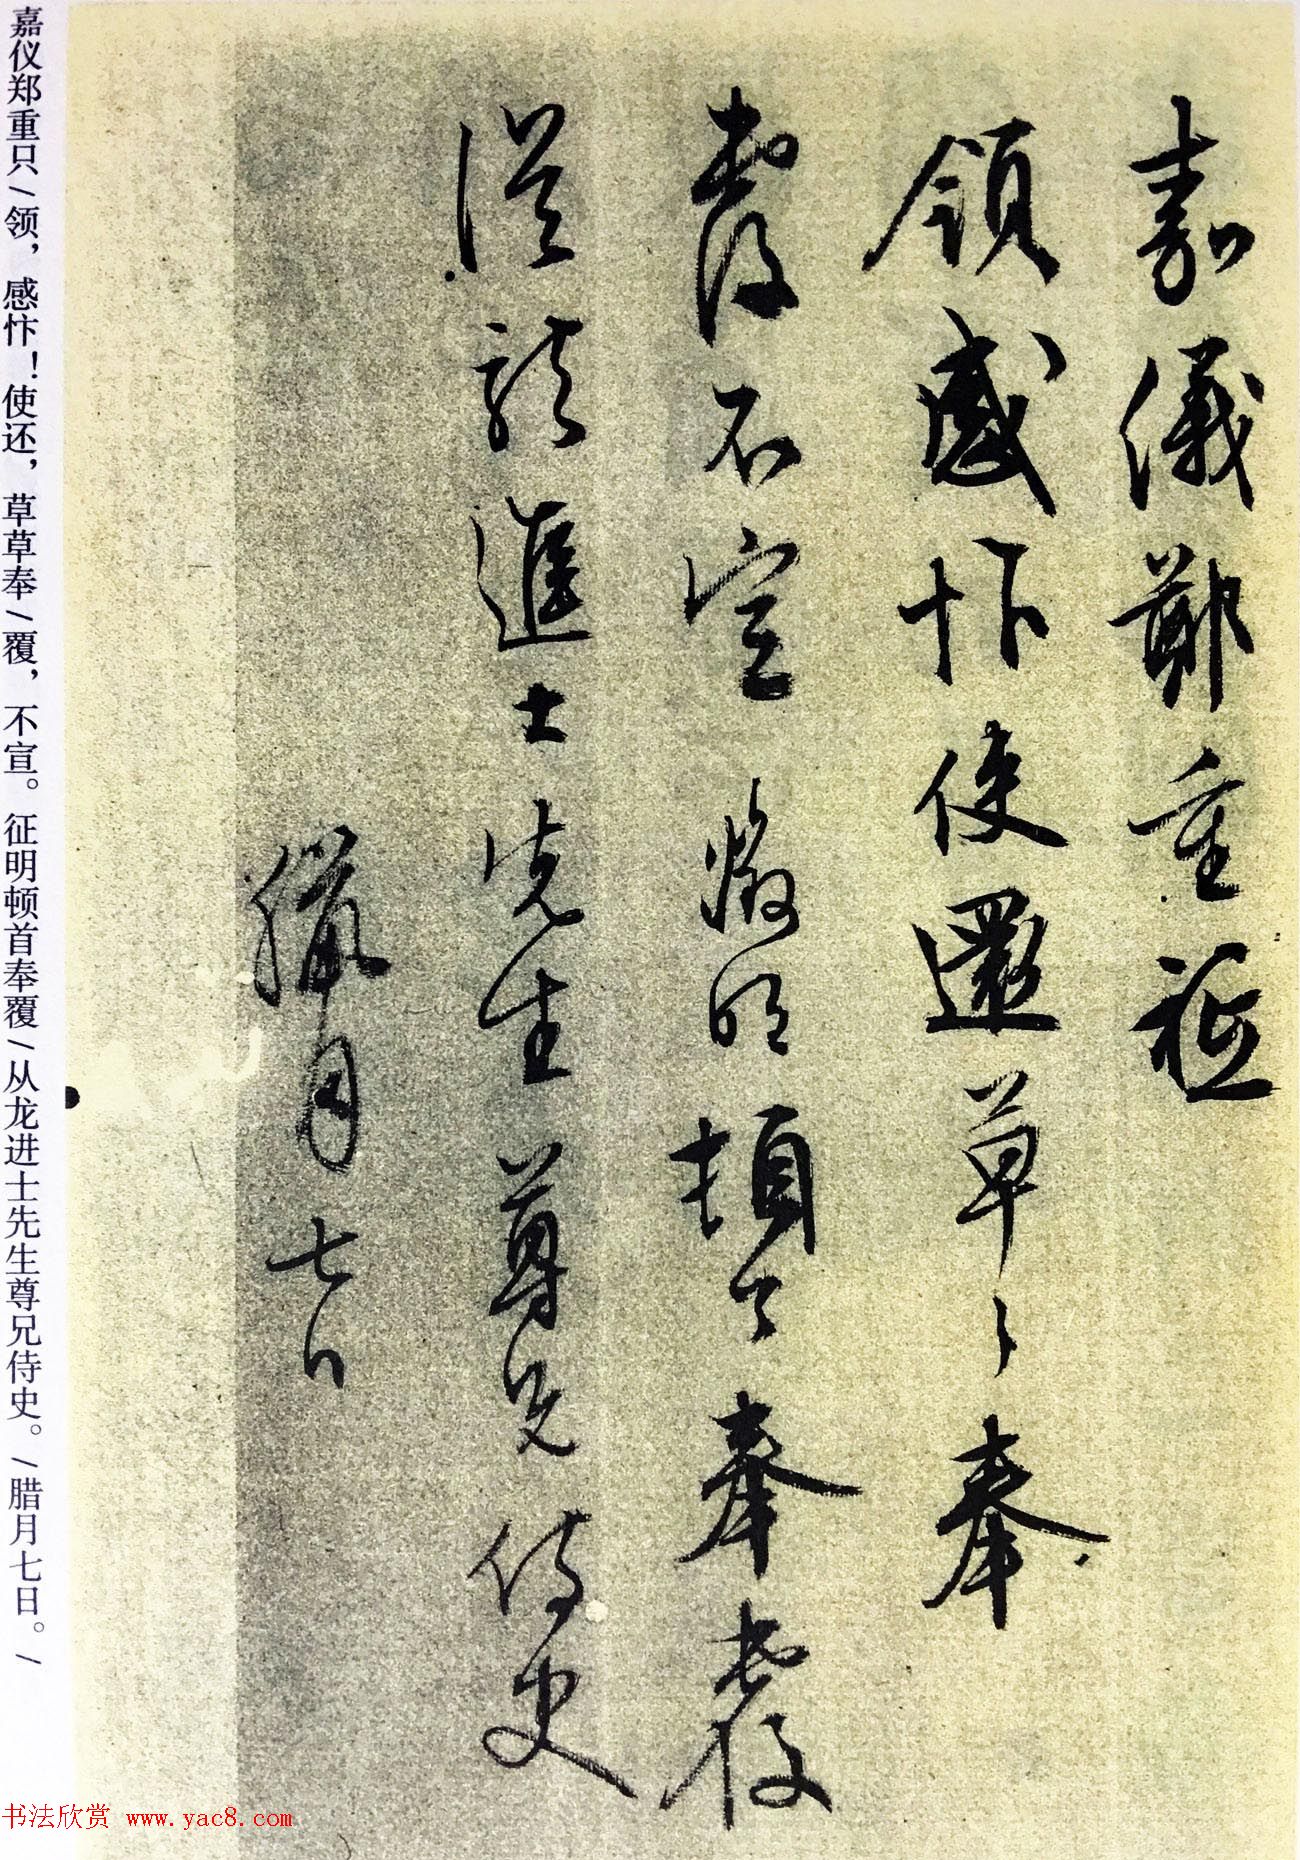 嘉儀鄭重祗
領感忭使還草〻奉
覆不宣 徵明頓首奉覆
從龍進士先生尊兄侍史
臘月七日
嘉仪郑重只/领，感忭！使还，草草奉/覆，不宣。征明顿首奉覆/从龙进士先生尊兄侍史。/腊月七日。/
书法欣赏 www.yac8.com